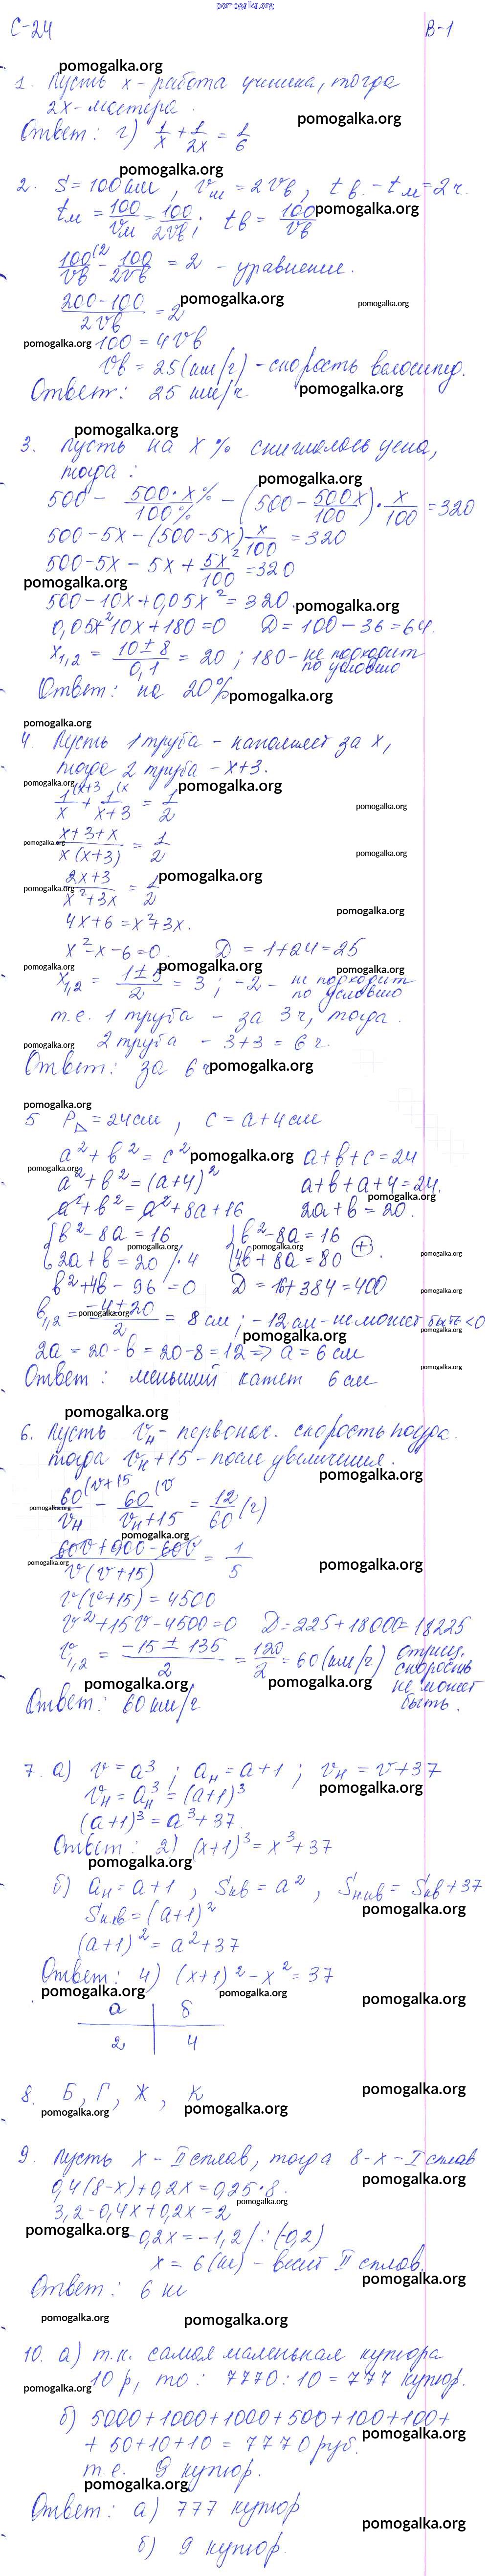 pomogalka.org
С-24 В-1
1. Пусть x - работа ученика, тогда
2x - мастера.
Ответ: г) 1/x + 1/2x = 1/6
2. S = 100 км, vм = 2vв, tв - tм = 2 ч.
tм = 100/vм = 100/2vв; tв = 100/vв
100/vв (2 - 100/2vв = 2 - уравнение.
200-100/2vв = 2
100 = 4vв
vв = 25 (км/ч) - скорость велосипед.
Ответ: 25 км/ч
3. Пусть на x % снижалась цена,
тогда:
500 - 500·x%/100% - (500 - 500x/100) · x/100 = 320
500 - 5x - (500 - 5x) x/100 = 320
500 - 5x - 5x + 5x²/100 = 320
500 - 10x + 0,05x² = 320
0,05x² 10x + 180 = 0 D = 100 - 36 = 64.
x1,2 = 10 ± 8/0,1 = 20; 180 - не подходит по условию
Ответ: на 20%
4. Пусть 1 труба - наполняет за x,
тогда 2 труба - x+3.
1/x (x+3 + 1/x+3 (x = 1/2
x+3+x/x(x+3) = 1/2
2x+3/x²+3x = 1/2
4x+6 = x²+3x.
x²-x-6=0 D = 1+24 = 25
x1,2 = 1 ± 5/2 = 3; -2 - не подходит по условию
т.е. 1 труба - за 3 ч, тогда
2 труба - 3+3 = 6 ч.
Ответ: за 6 ч
5 P△ = 24 см, c = a + 4 см
a² + b² = c² a+b+c = 24
a² + b² = (a+4)² a+b+a+4 = 24.
a² + b² = a² + 8a + 16 2a+b = 20.
{b² - 8a = 16 {b² - 8a = 16
{2a + b = 20 /·4 {4b + 8a = 80 (+).
b² + 4b - 96 = 0 D = 16 + 384 = 400
b1,2 = -4+20/2 = 8 см; -12 см - не может быть <0
2a = 20 - b = 20 - 8 = 12 => a = 6 см
Ответ: меньший катет 6 см
6. Пусть vн - первонач. скорость поезда.
тогда vн + 15 - после увеличения.
60/vн (v+15 - 60/vн+15 (v = 12/60 (ч)
60v + 900 - 60v/v(v+15) = 1/5
v(v+15) = 4500
v² + 15v - 4500 = 0 D = 225 + 18000 = 18225
v1,2 = -15 ± 135/2 = 120/2 = 60 (км/ч) отриц. скорость не может быть.
Ответ: 60 км/ч
7. а) v = a³; aн = a+1; vн = v+37
vн = aн³ = (a+1)³
(a+1)³ = a³+37
Ответ: 2) (x+1)³ = x³+37
б) aн = a+1, Sкв = a², Sн кв = Sкв + 37
Sн.кв = (a+1)²
(a+1)² = a²+37
Ответ: 4) (x+1)² - x² = 37
а б
2 4
8. Б, Г, Ж, К
9. Пусть x - II сплав, тогда 8-x - I сплав
0,4(8-x) + 0,2x = 0,25·8.
3,2 - 0,4x + 0,2x = 2
-0,2x = -1,2 / :(-0,2)
x = 6 (кг) - весит II сплав.
Ответ: 6 кг
10. а) т.к. самая маленькая купюра
10 р, то: 7770 : 10 = 777 купюр.
б) 5000 + 1000 + 1000 + 500 + 100 + 100 +
+ 50 + 10 + 10 = 7770 руб.
т.е. 9 купюр.
Ответ: а) 777 купюр
б) 9 купюр.